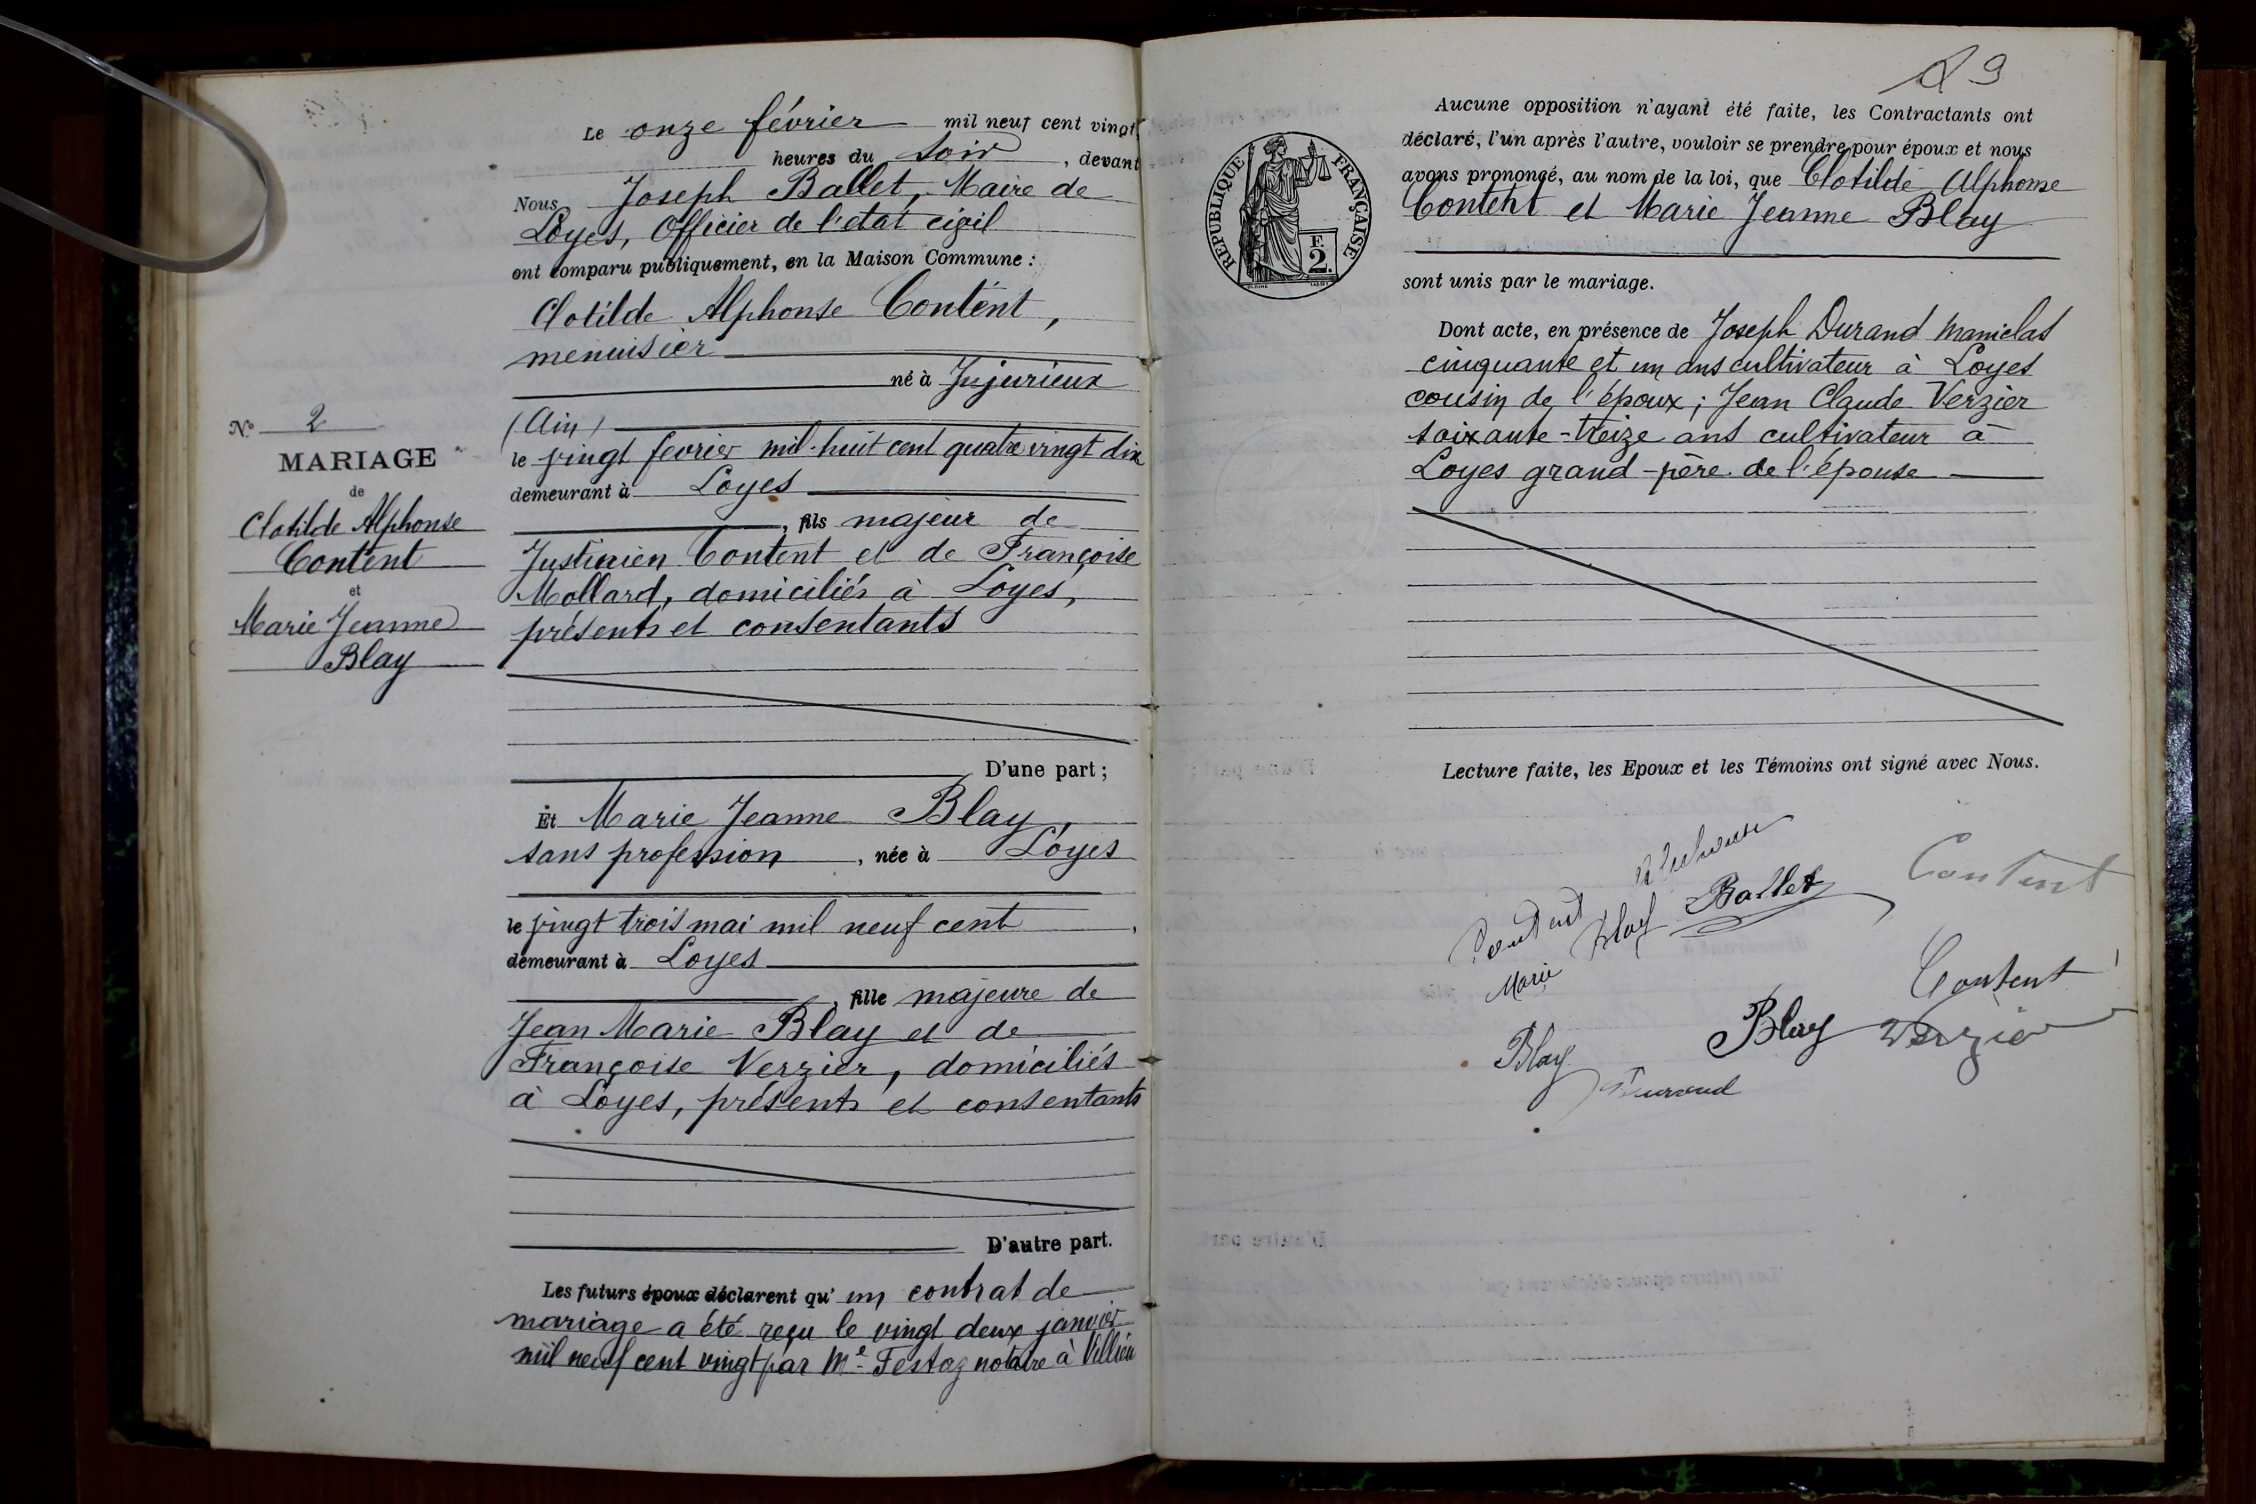 Le onze février mil neuf cent vingt
heures du soir, devant
Nous Joseph Ballet, Maire de
Loyes, Officier de l'état civil
ont comparu publiquement, en la Maison Commune :
Clotilde Alphonse Content,
menuisier
né à Jujurieux
(Ain)
le vingt fevrier mil-huit cent quatre vingt dix
demeurant à Loyes
, fils majeur de
Justinien Content et de Françoise
Mollard, domiciliés à Loyes,
présents et consentants
D'une part ;
Et Marie Jeanne Blay,
sans profession, née à Loyes
le vingt trois mai mil neuf cent,
demeurant à Loyes
, fille majeure de
Jean Marie Blay et de
Françoise Verzier, domiciliés
à Loyes, présents et consentants
D'autre part.
Les futurs époux déclarent qu'un contrat de
mariage a été reçu le vingt deux janvier
mil neuf cent vingt par Me Festaz notaire à Villieu
N° 2
MARIAGE
de
Clotilde Alphonse
Content
et
Marie Jeanne
Blay
9
RÉPUBLIQUE FRANÇAISE
F.
2.
Aucune opposition n'ayant été faite, les Contractants ont
déclaré, l'un après l'autre, vouloir se prendre pour époux et nous
avons prononcé, au nom de la loi, que Clotilde Alphonse
Content et Marie Jeanne Blay
sont unis par le mariage.
Dont acte, en présence de Joseph Durand
cinquante et un ans cultivateur à Loyes
cousin de l'époux ; Jean Claude Verzier
soixante-treize ans cultivateur à
Loyes grand-père de l'épouse
Lecture faite, les Epoux et les Témoins ont signé avec Nous.
Content
Marie Blay Ballet Content
Content
Blay Blay Verzier
Durand